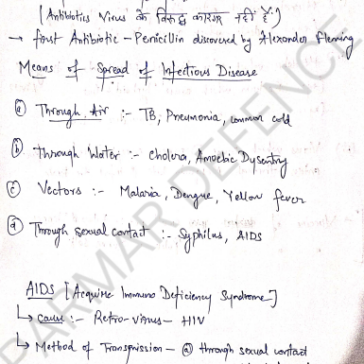 [Antibiotics Virus के विरूद्ध कारगर नहीं हैं।]
→ first Antibiotic - Penicillin discovered by Alexander Fleming
Means of Spread of Infectious Disease
ⓐ Through Air :- TB, Pneumonia, common cold
ⓑ Through Water :- Cholera, Amoebic Dysentry
ⓒ Vectors :- Malaria, Dengue, Yellow fever
ⓓ Through sexual contact :- Syphilus, AIDS
AIDS [Acquire Immuno Deficiency Syndrome]
↳ cause :- Retro-virus - HIV
↳ Method of Transmission - ⓐ through sexual contact
PARMAR DEFENCE